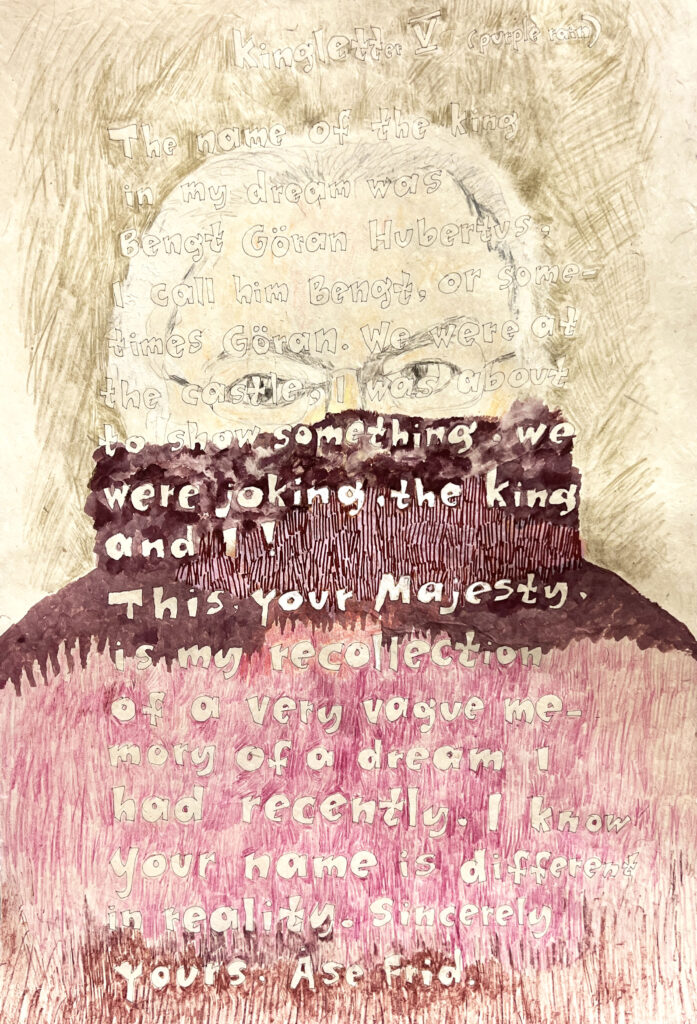 Kingletter V (purple rain)
The name of the king
in my dream was
Bengt Göran Hubertus.
I call him Bengt, or some-
times Göran. We were at
the castle, I was about
to show something. we
were joking. the king
and I!
This. your Majesty.
is my recollection
of a very vague me-
mory of a dream I
had recently. I know
your name is different
in reality. Sincerely
yours. Åse Frid.